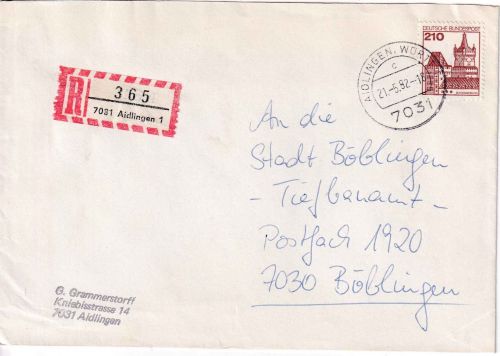 R
365
7031 Aidlingen 1
AIDLINGEN, WÜRTT
c
21.-5.82.-1
7031
DEUTSCHE BUNDESPOST
210
An die
Stadt Böblingen
- Tiefbauamt -
Postfach 1920
7030 Böblingen
G. Grammerstorff
Kniebisstrasse 14
7031 Aidlingen